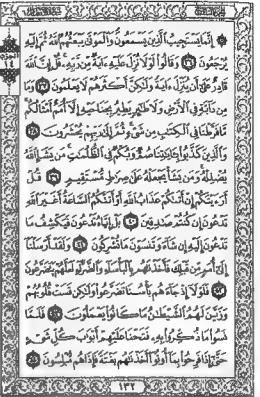 ۞ إِنَّمَا يَسْتَجِيبُ ٱلَّذِينَ يَسْمَعُونَ وَٱلْمَوْتَىٰ يَبْعَثُهُمُ ٱللَّهُ ثُمَّ إِلَيْهِ
يُرْجَعُونَ ٣٦ وَقَالُوا۟ لَوْلَا نُزِّلَ عَلَيْهِ ءَايَةٌ مِّن رَّبِّهِۦ قُلْ إِنَّ ٱللَّهَ
قَادِرٌ عَلَىٰٓ أَن يُنَزِّلَ ءَايَةً وَلَٰكِنَّ أَكْثَرَهُمْ لَا يَعْلَمُونَ ٣٧ وَمَا
مِن دَآبَّةٍ فِى ٱلْأَرْضِ وَلَا طَٰٓئِرٍ يَطِيرُ بِجَنَاحَيْهِ إِلَّآ أُمَمٌ أَمْثَالُكُم
مَّا فَرَّطْنَا فِى ٱلْكِتَٰبِ مِن شَىْءٍ ثُمَّ إِلَىٰ رَبِّهِمْ يُحْشَرُونَ ٣٨
وَٱلَّذِينَ كَذَّبُوا۟ بِـَٔايَٰتِنَا صُمٌّ وَبُكْمٌ فِى ٱلظُّلُمَٰتِ مَن يَشَإِ ٱللَّهُ
يُضْلِلْهُ وَمَن يَشَأْ يَجْعَلْهُ عَلَىٰ صِرَٰطٍ مُّسْتَقِيمٍ ٣٩ قُلْ
أَرَءَيْتَكُمْ إِنْ أَتَىٰكُمْ عَذَابُ ٱللَّهِ أَوْ أَتَتْكُمُ ٱلسَّاعَةُ أَغَيْرَ ٱللَّهِ
تَدْعُونَ إِن كُنتُمْ صَٰدِقِينَ ٤٠ بَلْ إِيَّاهُ تَدْعُونَ فَيَكْشِفُ مَا
تَدْعُونَ إِلَيْهِ إِن شَآءَ وَتَنسَوْنَ مَا تُشْرِكُونَ ٤١ وَلَقَدْ أَرْسَلْنَآ
إِلَىٰٓ أُمَمٍ مِّن قَبْلِكَ فَأَخَذْنَٰهُم بِٱلْبَأْسَآءِ وَٱلضَّرَّآءِ لَعَلَّهُمْ يَتَضَرَّعُونَ
٤٢ فَلَوْلَآ إِذْ جَآءَهُم بَأْسُنَا تَضَرَّعُوا۟ وَلَٰكِن قَسَتْ قُلُوبُهُمْ
وَزَيَّنَ لَهُمُ ٱلشَّيْطَٰنُ مَا كَانُوا۟ يَعْمَلُونَ ٤٣ فَلَمَّا
نَسُوا۟ مَا ذُكِّرُوا۟ بِهِۦ فَتَحْنَا عَلَيْهِمْ أَبْوَٰبَ كُلِّ شَىْءٍ
حَتَّىٰٓ إِذَا فَرِحُوا۟ بِمَآ أُوتُوٓا۟ أَخَذْنَٰهُم بَغْتَةً فَإِذَا هُم مُّبْلِسُونَ ٤٤
١٣٢